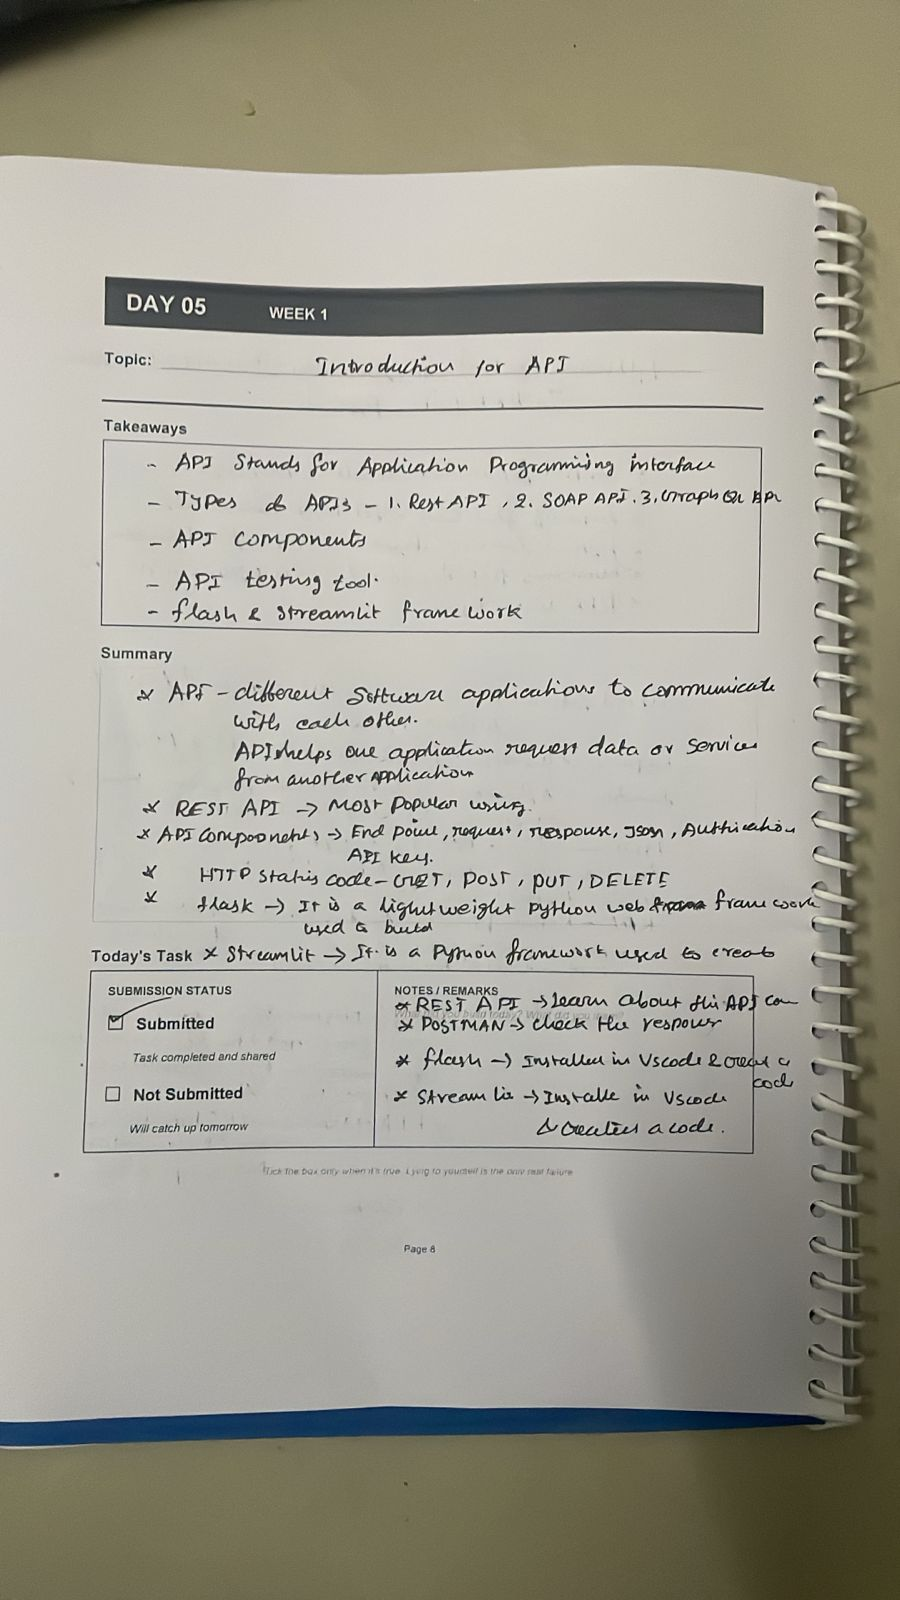 DAY 05 WEEK 1
Topic: Introduction for API
Takeaways
- API Stands for Application Programming interface
- Types of APIs - 1. Rest API, 2. SOAP API. 3. Graph QL API
- API components
- API testing tool.
- flash & streamlit frame work
Summary
* API - different Software applications to communicate
with each other.
API helps one application request data or services
from another Application
* REST API → Most Popular using.
* API Components → End point, request, response, Json, Authication
API key.
* HTTP Status code - GET, POST, PUT, DELETE
* flask → It is a lightweight python web frame work
used to build
Today's Task * Streamlit → It is a Python framework used to create
SUBMISSION STATUS
Submitted
Task completed and shared
Not Submitted
Will catch up tomorrow
NOTES / REMARKS
* REST API → learn about this API
* POSTMAN → check the respouse
* flash → Installed in Vscode & create a
code
* Stream → Installe in Vscode
& a code.
Tick the box only when it's true. Lying to yourself is the only real failure
Page 8